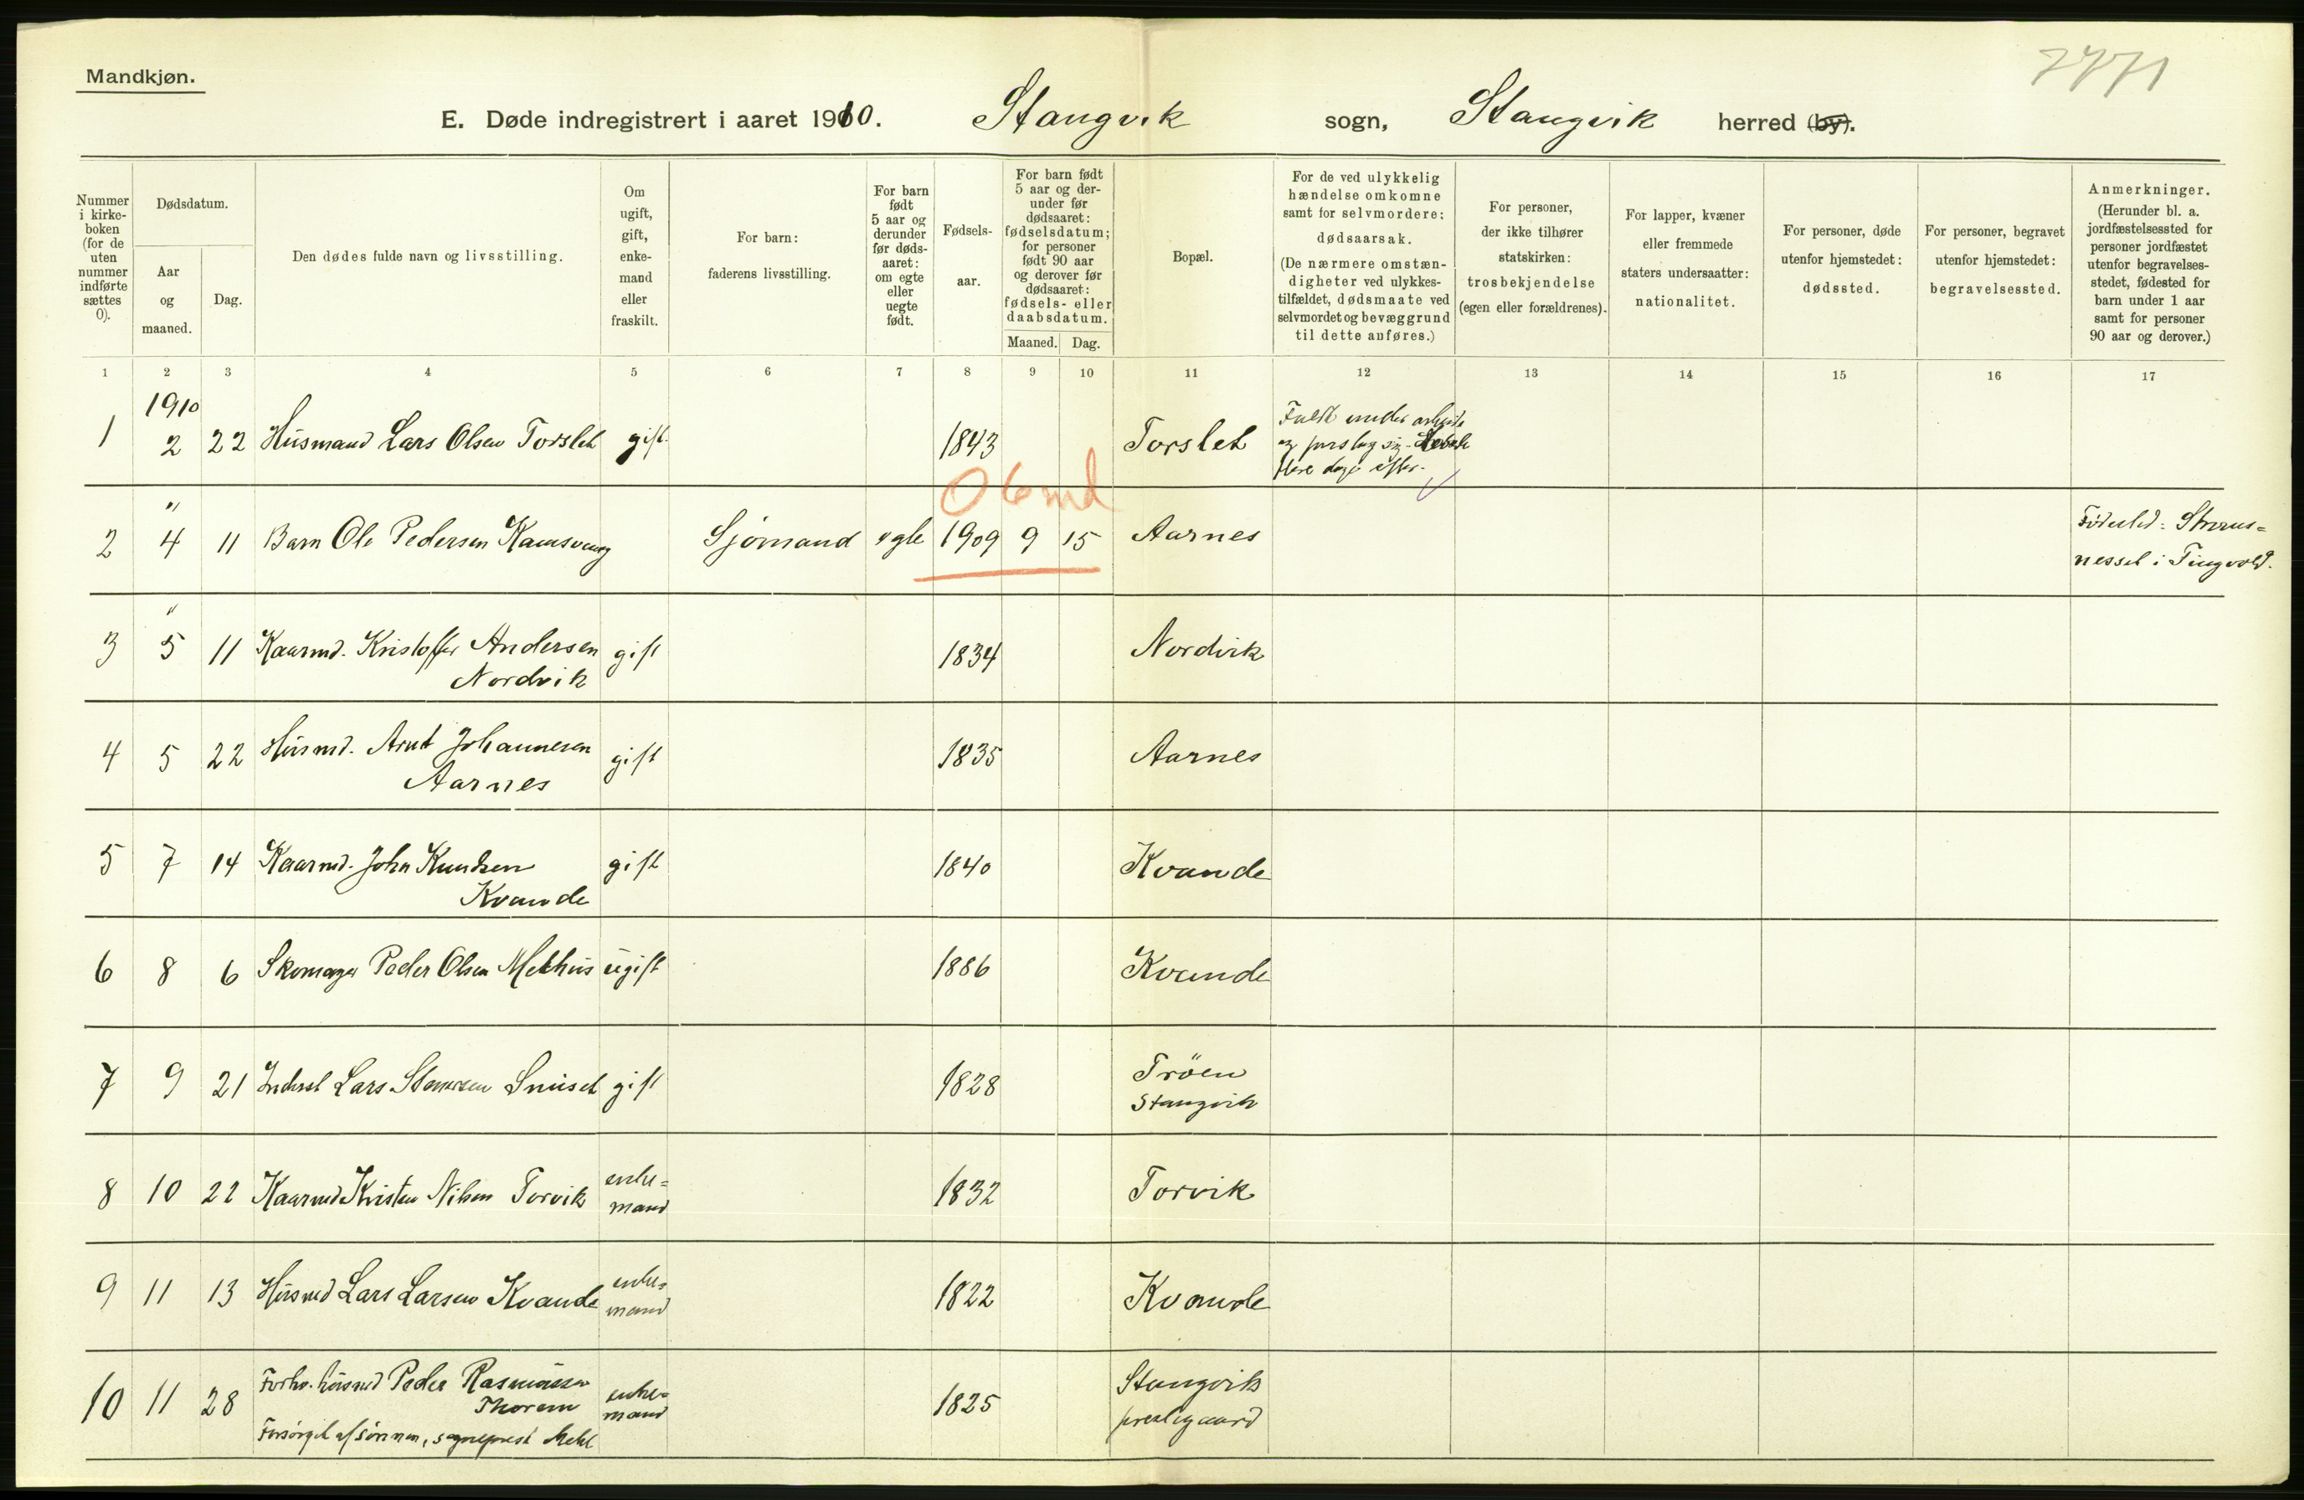 Mandkjøn.
7771
E. Døde indregistrert i aaret 1910. Stangvik sogn, Stangvik herred (by).
Nummer i kirkeboken (for de uten nummer indførte sættes 0).
Dødsdatum.
Aar og maaned.
Dag.
Den dødes fulde navn og livsstilling.
Om ugift, gift, enkemand eller fraskilt.
For barn: faderens livsstilling.
For barn født 5 aar og derunder før dødsaaret: om egte eller uegte født.
Fødselsaar.
For barn født 5 aar og derunder før dødsaaret: fødselsdatum; for personer født 90 aar og derover før dødsaaret: fødsels- eller daabsdatum.
Maaned. Dag.
Bopæl.
For de ved ulykkelig hændelse omkomne samt for selvmordere: dødsaarsak. (De nærmere omstændigheter ved ulykkestilfældet, dødsmaate ved selvmordet og bevæggrund til dette anføres.)
For personer, der ikke tilhører statskirken: trosbekjendelse (egen eller forældrenes).
For lapper, kvæner eller fremmede staters undersaatter: nationalitet.
For personer, døde utenfor hjemstedet: dødssted.
For personer, begravet utenfor hjemstedet: begravelsessted.
Anmerkninger. (Herunder bl. a. jordfæstelsessted for personer jordfæstet utenfor begravelsesstedet, fødested for barn under 1 aar samt for personer 90 aar og derover.)
1 2 3 4 5 6 7 8 9 10 11 12 13 14 15 16 17
1910
1 2 22 Husmand Lars Olsen Torslet gift 1843 Torslet Faldt under arbeide
og forslog sig. Døde
flere dage efter.
0 6 md
2 " 4 11 Barn Ole Pedersen Kamsvaag Sjømand egte 1909 9 15 Aarnes Fødested: Straums=
nesset i Tingvold.
3 " 5 11 Kaarmd. Kristoffer Andersen gift 1834 Nordvik
Nordvik
4 5 22 Husmd. Arnt Johannesen gift 1835 Aarnes
Aarnes
5 7 14 Kaarmd. John Knudsen gift 1840 Kvande
Kvande
6 8 6 Skomager Peder Olsen Melhus ugift 1886 Kvande
7 9 21 Inderst Lars Sivertsen Snuset gift 1828 Trøen
Stangvik
8 10 22 Kaarmd Kristen Nilsen Torvik enke=
mand 1832 Torvik
9 11 13 Husmd Lars Larsen Kvande enke=
mand 1822 Kvande
10 11 28 Forhv. husmd Peder Rasmussen enke=
mand 1825 Stangvik
prestegaard
Thorem
Forsørget af sønnen, sogneprest